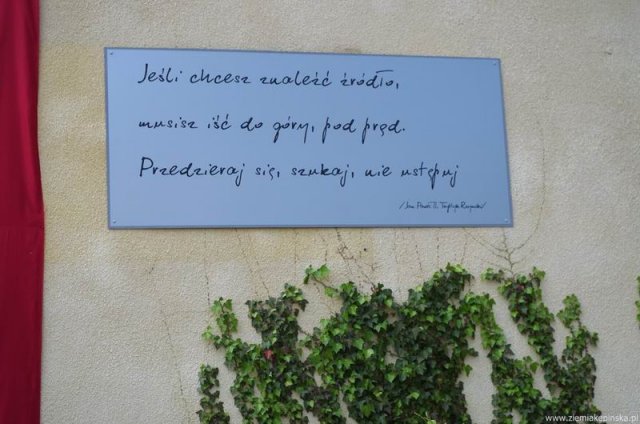 Jeśli chcesz znaleźć źródło,
musisz iść do góry, pod prąd.
Przedzieraj się, szukaj, nie ustępuj
/Jan Paweł II, Tryptyk Rzymski/
www.ziemiakepinska.pl